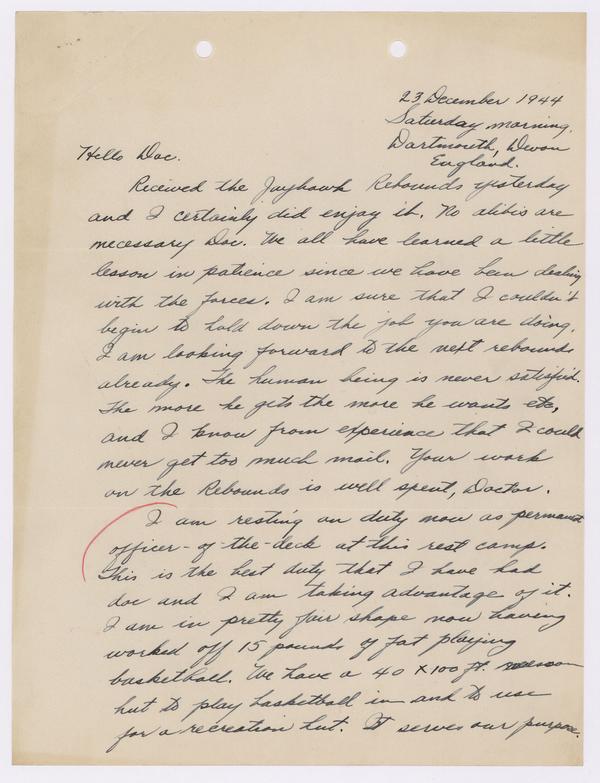 23 December 1944
Saturday morning.
Dartmouth, Devon
England.
Hello Doc.
Received the Jayhawk Rebounds yesterday
and I certainly did enjoy it. No alibis are
necessary Doc. We all have learned a little
lesson in patience since we have been dealing
with the forces. I am sure that I couldn't
begin to hold down the job you are doing.
I am looking forward to the next rebounds
already. The human being is never satisfied.
The more he gets the more he wants etc,
and I know from experience that I could
never get too much mail. Your work
on the Rebounds is well spent, Doctor.
I am resting on duty now as permanent
officer-of-the-deck at this rest camp.
This is the best duty that I have had
doc and I am taking advantage of it.
I am in pretty fair shape now having
worked off 15 pounds of fat playing
basketball. We have a 40 x 100 ft.
hut to play basketball in and to use
for a recreation hut. It serves our purpose.